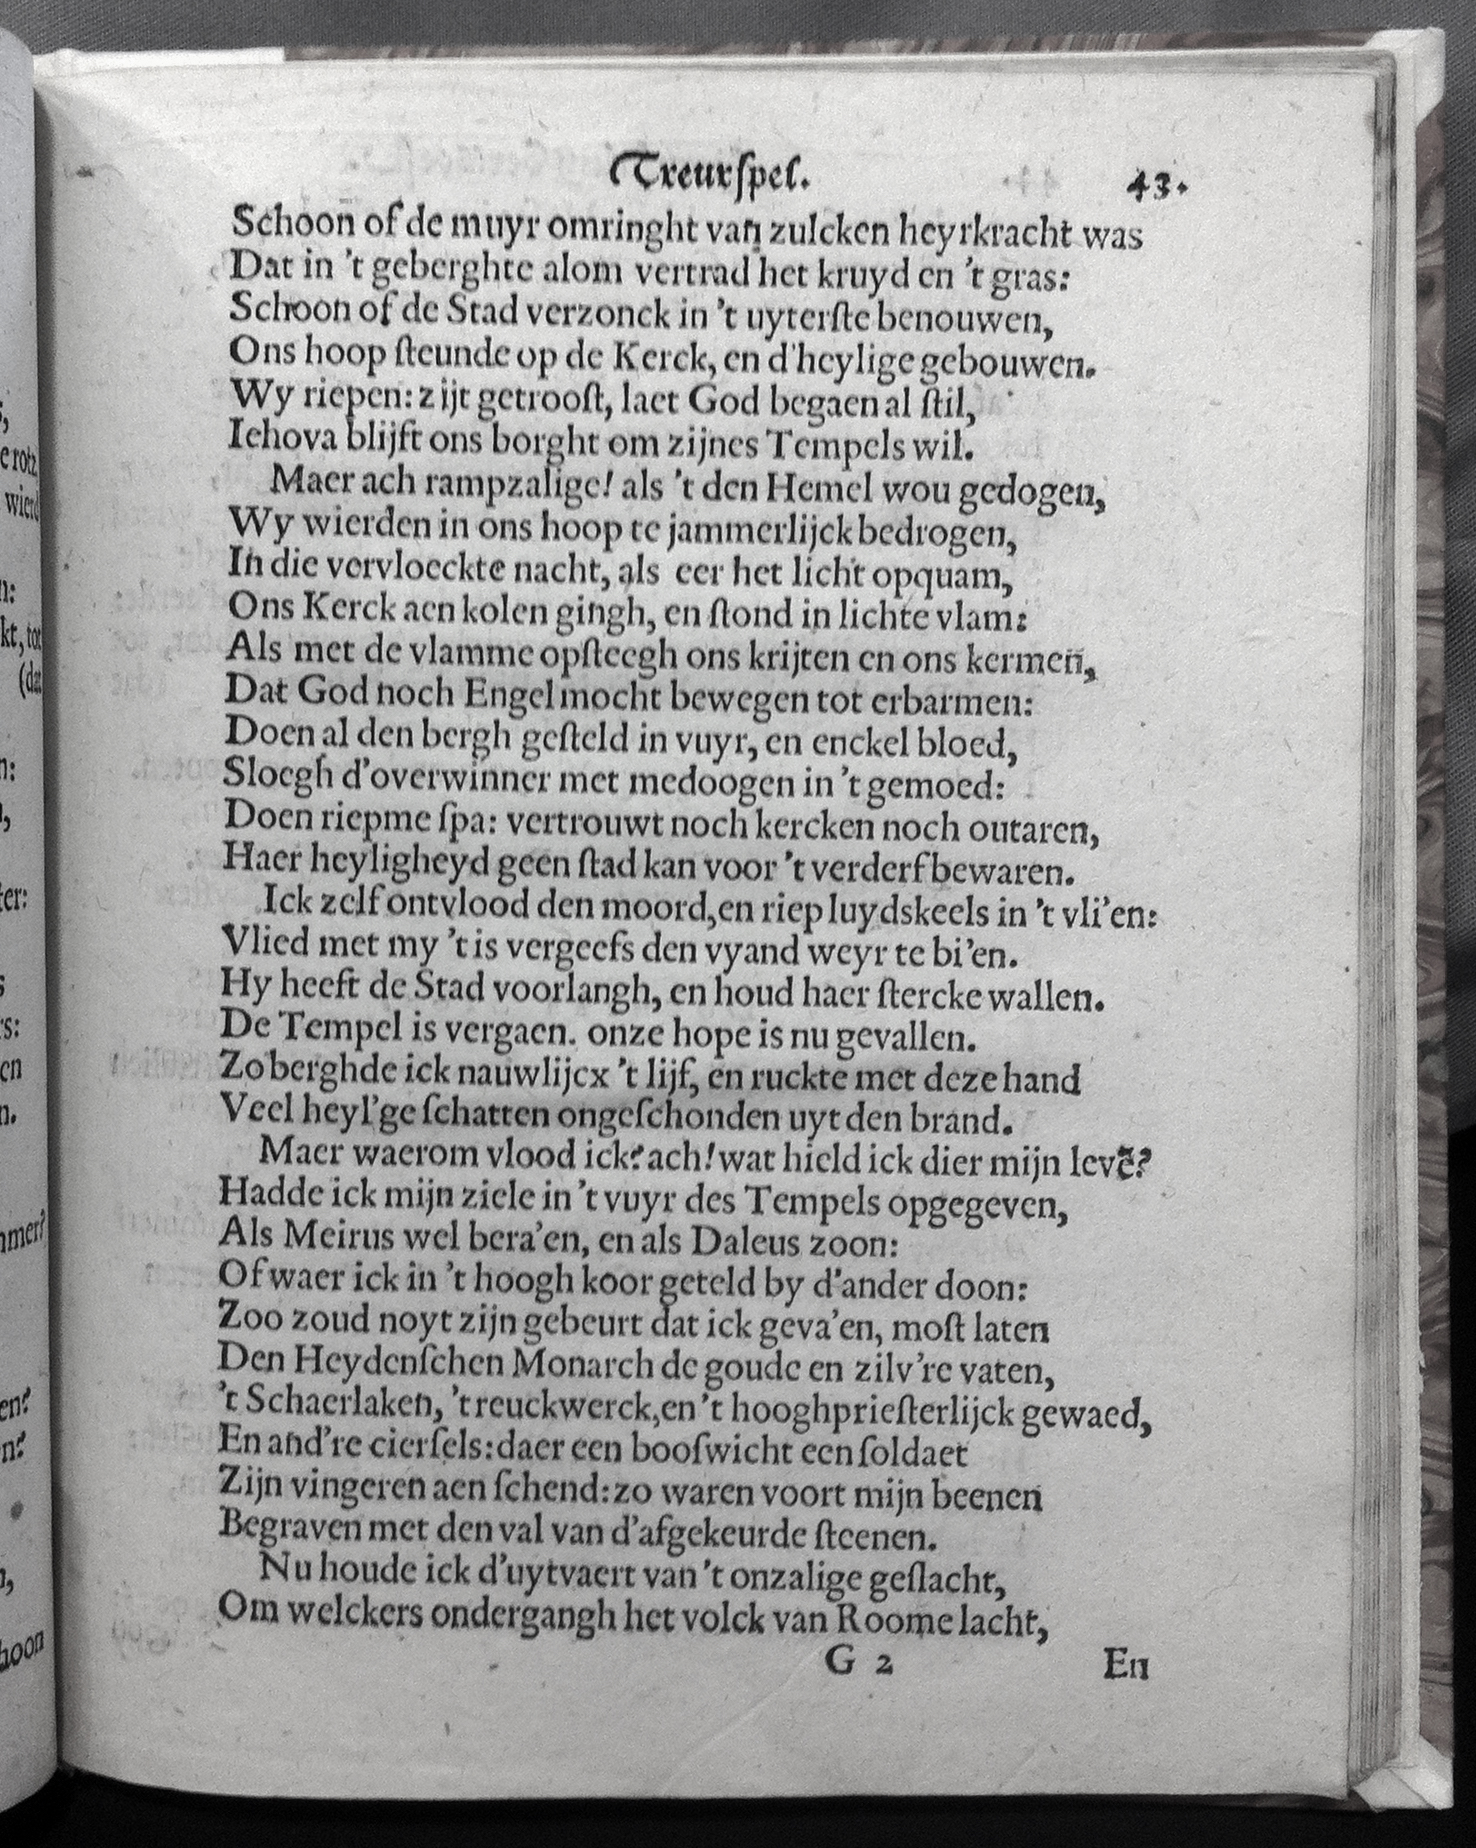 Treurſpel. 43.
Schoon of de muyr omringht van zulcken heyrkracht was
Dat in 't geberghte alom vertrad het kruyd en 't gras:
Schoon of de Stad verzonck in 't uyterſte benouwen,
Ons hoop ſteunde op de Kerck, en d'heylige gebouwen.
Wy riepen: zijt getrooſt, laet God begaen al ſtil,
Iehova blijft ons borght om zijnes Tempels wil.
Maer ach rampzalige! als 't den Hemel wou gedogen,
Wy wierden in ons hoop te jammerlijck bedrogen,
In die vervloeckte nacht, als eer het licht opquam,
Ons Kerck aen kolen gingh, en ſtond in lichte vlam:
Als met de vlamme opſteegh ons krijten en ons kermen,
Dat God noch Engel mocht bewegen tot erbarmen:
Doen al den bergh geſteld in vuyr, en enckel bloed,
Sloegh d'overwinner met medoogen in 't gemoed:
Doen riepme ſpa: vertrouwt noch kercken noch outaren,
Haer heyligheyd geen ſtad kan voor 't verderf bewaren.
Ick zelf ontvlood den moord, en riep luydskeels in 't vli'en:
Vlied met my 't is vergeefs den vyand weyr te bi'en.
Hy heeft de Stad voorlangh, en houd haer ſtercke wallen.
De Tempel is vergaen. onze hope is nu gevallen.
Zo berghde ick nauwlijcx 't lijf, en ruckte met deze hand
Veel heyl'ge ſchatten ongeſchonden uyt den brand.
Maer waerom vlood ick? ach! wat hield ick dier mijn levē?
Hadde ick mijn ziele in 't vuyr des Tempels opgegeven,
Als Meirus wel bera'en, en als Daleus zoon:
Of waer ick in 't hoogh koor geteld by d'ander doon:
Zoo zoud noyt zijn gebeurt dat ick geva'en, moſt laten
Den Heydenſchen Monarch de goude en zilv're vaten,
't Schaerlaken, 't reuckwerck, en 't hooghprieſterlijck gewaed,
En and're cierſels: daer een booſwicht een ſoldaet
Zijn vingeren aen ſchend: zo waren voort mijn beenen
Begraven met den val van d'afgekeurde ſteenen.
Nu houde ick d'uytvaert van 't onzalige geſlacht,
Om welckers ondergangh het volck van Roome lacht,
G 2 En